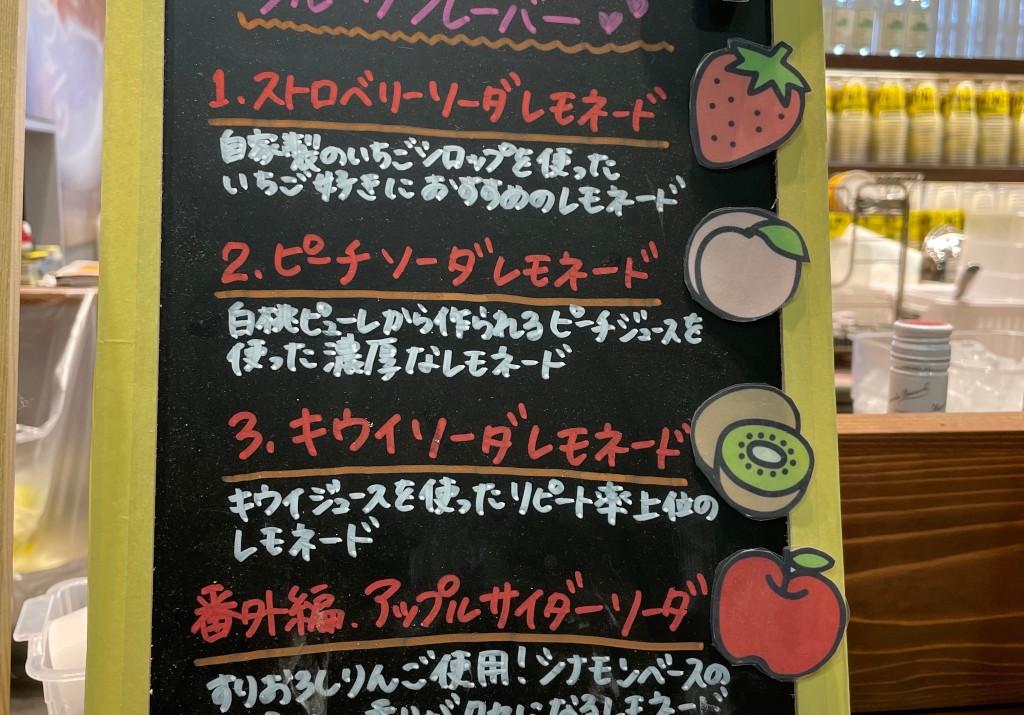 フルーツフレーバー
1.ストロベリーソーダレモネード
自家製のいちごシロップを使った
いちご好きにおすすめのレモネード
2.ピーチソーダレモネード
白桃ピューレから作られるピーチジュースを
使った濃厚なレモネード
3.キウイソーダレモネード
キウイジュースを使ったリピート率上位の
レモネード
番外編.アップルサイダーソーダ
すりおろしりんご使用!シナモンベースの
クセになるレモネード